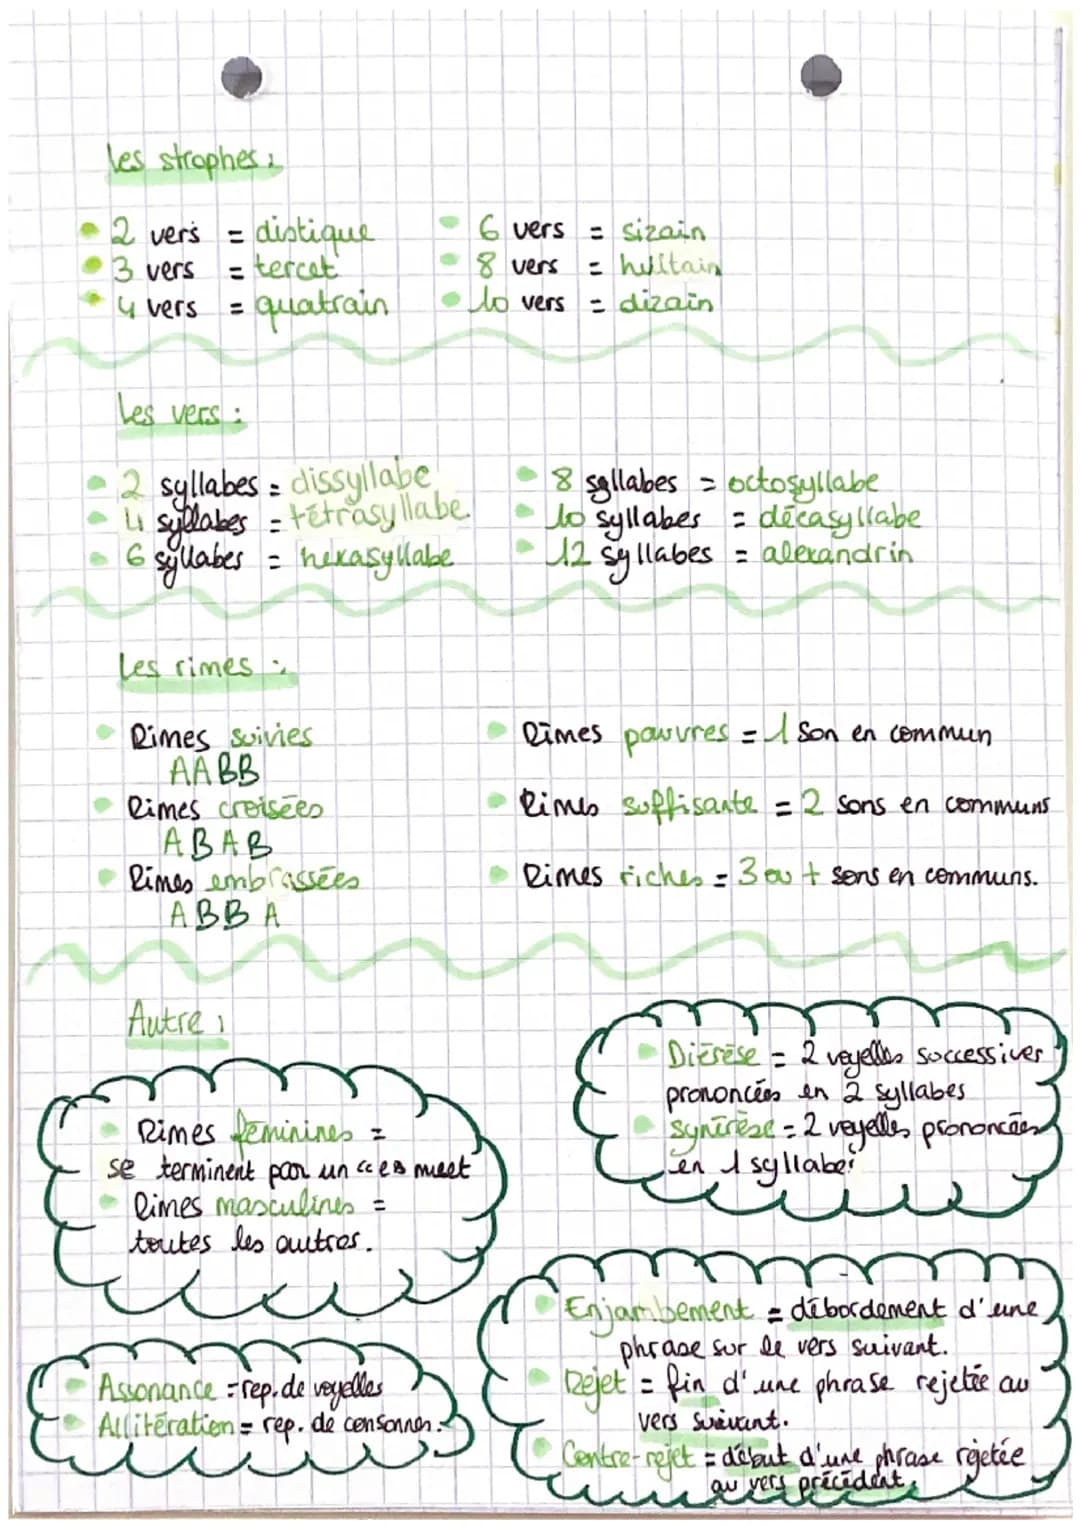 Les strophes :
2 vers = distique
3 vers = tercet
4 vers = quatrain
6 vers = sizain
8 vers = huitain
10 vers = dizain
Les vers :
2 syllabes = dissyllabe
4 syllabes = tétrasyllabe
6 syllabes = hexasyllabe
8 syllabes = octosyllabe
10 syllabes = décasyllabe
12 syllabes = alexandrin
Les rimes :
Rimes suivies
AABB
Rimes croisées
ABAB
Rimes embrassées
ABBA
Rimes pauvres = 1 son en commun
Rimes suffisante = 2 sons en communs
Rimes riches = 3 ou + sons en communs.
Autre :
Rimes féminines =
se terminent par un "e" muet
Rimes masculines =
toutes les autres.
Diérèse = 2 voyelles successives
prononcées en 2 syllabes
synérèse = 2 voyelles prononcées
en 1 syllabe
Assonance = rep. de voyelles
Allitération = rep. de consonnes.
Enjambement = débordement d'une
phrase sur le vers suivant.
Rejet = fin d'une phrase rejetée au
vers suivant.
Contre-rejet = début d'une phrase rejetée
au vers précédent.